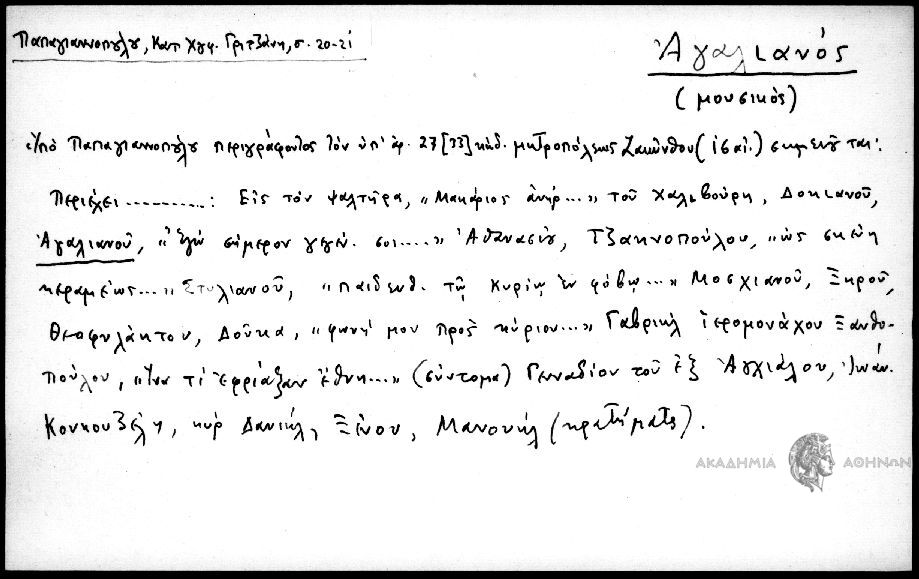 Παπαγιαννοπούλου, Κατ. Χγφ. Γριτζάνη, σ. 20-21
Ἀγαλιανός
(μουσικός)
Ὑπὸ Παπαγιαννοπούλου περιγράφοντος τὸν ὑπ' ἀρ. 27 [33] κώδ. μητροπόλεως Ζακύνθου (ἰσαί.) σημειοῦται:
Περιέχει ..........: Εἰς τὸν ψαλτῆρα, "Μακάριος ἀνήρ..." τοῦ Χαλιβούρη, Δοκιανοῦ,
Ἀγαλιανοῦ, "Ἐγὼ σήμερον γεγέν. σοι...." Ἀθανασίου, Τζακνοπούλου, "ὡς σκεύη
κεραμέως..." Στυλιανοῦ, "παιδευθ. τῷ Κυρίῳ ἐν φόβῳ..." Μοσχιανοῦ, Ξηροῦ,
Θεοφυλάκτου, Δούκα, "φωνή μου πρὸς κύριον..." Γαβριὴλ ἱερομονάχου Ξανθο-
πούλου, "Ἵνα τί ἐφρύαξαν ἔθνη..." (σύντομα) Γενναδίου τοῦ ἐξ Ἀγχιάλου, Ἰωάν.
Κουκουζέλη, κὺρ Δανιήλ, Ξένου, Μανουήλ (κρατήματα).
ΑΚΑΔΗΜΙΑ ΑΘΗΝΩΝ